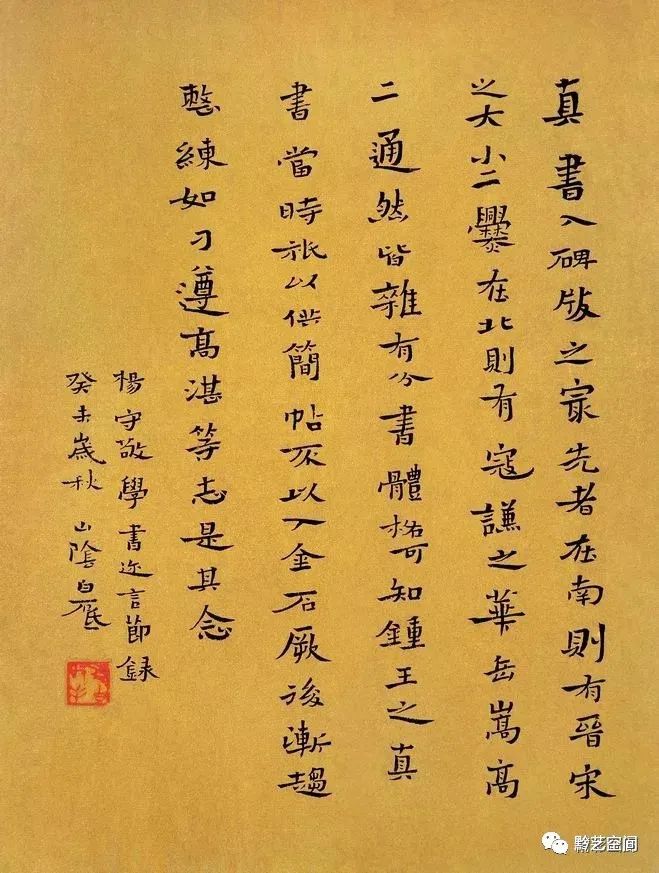 真書入碑版之冣先者在南則有晉宋
之大小二爨在北則有寇謙之華岳嵩高
二通然皆雜有分書體格可知鍾王之真
書當時祇以供簡帖不以入金石厥後漸趨
整練如刁遵高湛等志是其念
楊守敬學書迩言節录
癸未歲秋 山陰白砥
黔艺空间